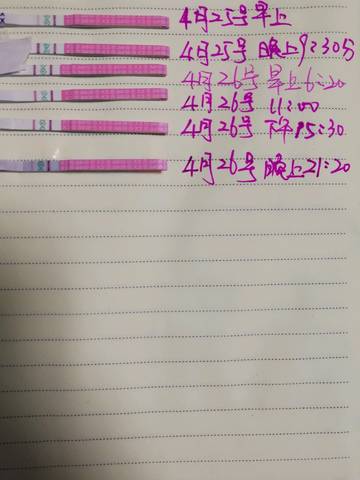 4月25号早上
4月25号 晚上9:30分
4月26号 早上6:20
4月26号 11:00
4月26号 下午15:30
4月26号 晚上21:20